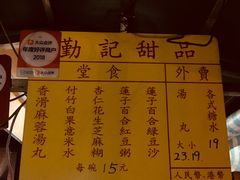 大众点评
年度好评商户
2018
大众点评
勤記甜品
堂食
蓮子百合綠豆沙
蓮子百合紅豆沙
杏仁花生芝麻糊
付竹白果意米水
香滑麻蓉湯丸
每碗15元
外賣
各式糖水
19
湯丸
大小
23.19